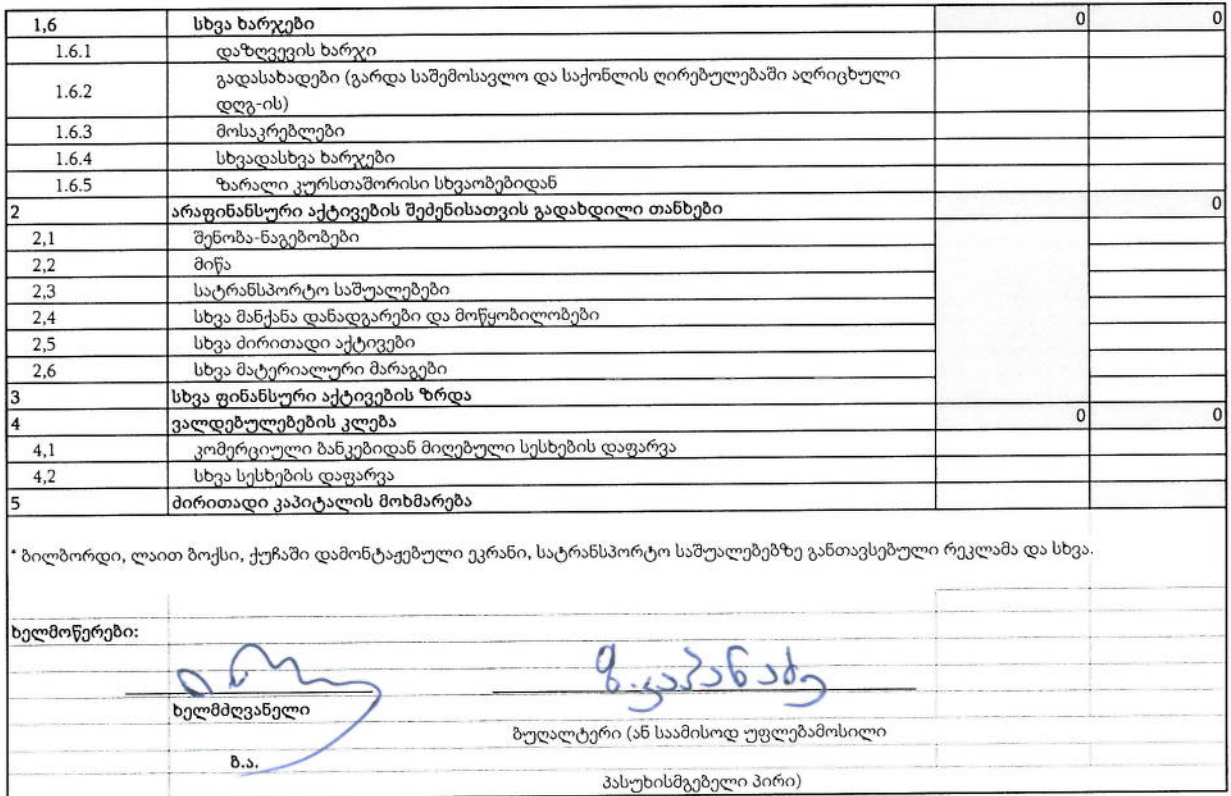 1,6 სხვა ხარჯები 0 0
1.6.1 დაზღვევის ხარჯი
1.6.2 გადასახადები (გარდა საშემოსავლო და საქონლის ღირებულებაში აღრიცხული
დღგ-ის)
1.6.3 მოსაკრებლები
1.6.4 სხვადასხვა ხარჯები
1.6.5 ზარალი კურსთაშორისი სხვაობებიდან
2 არაფინანსური აქტივების შეძენისათვის გადახდილი თანხები 0
2,1 შენობა-ნაგებობები
2,2 მიწა
2,3 სატრანსპორტო საშუალებები
2,4 სხვა მანქანა დანადგარები და მოწყობილობები
2,5 სხვა ძირითადი აქტივები
2,6 სხვა მატერიალური მარაგები
3 სხვა ფინანსური აქტივების ზრდა
4 ვალდებულებების კლება 0 0
4,1 კომერციული ბანკებიდან მიღებული სესხების დაფარვა
4,2 სხვა სესხების დაფარვა
5 ძირითადი კაპიტალის მოხმარება
* ბილბორდი, ლაით ბოქსი, ქუჩაში დამონტაჟებული ეკრანი, სატრანსპორტო საშუალებებზე განთავსებული რეკლამა და სხვა.
ხელმოწერები:
ზ. კაპანაძე
ხელმძღვანელი
ბუღალტერი (ან საამისოდ უფლებამოსილი
ბ.ა.
პასუხისმგებელი პირი)